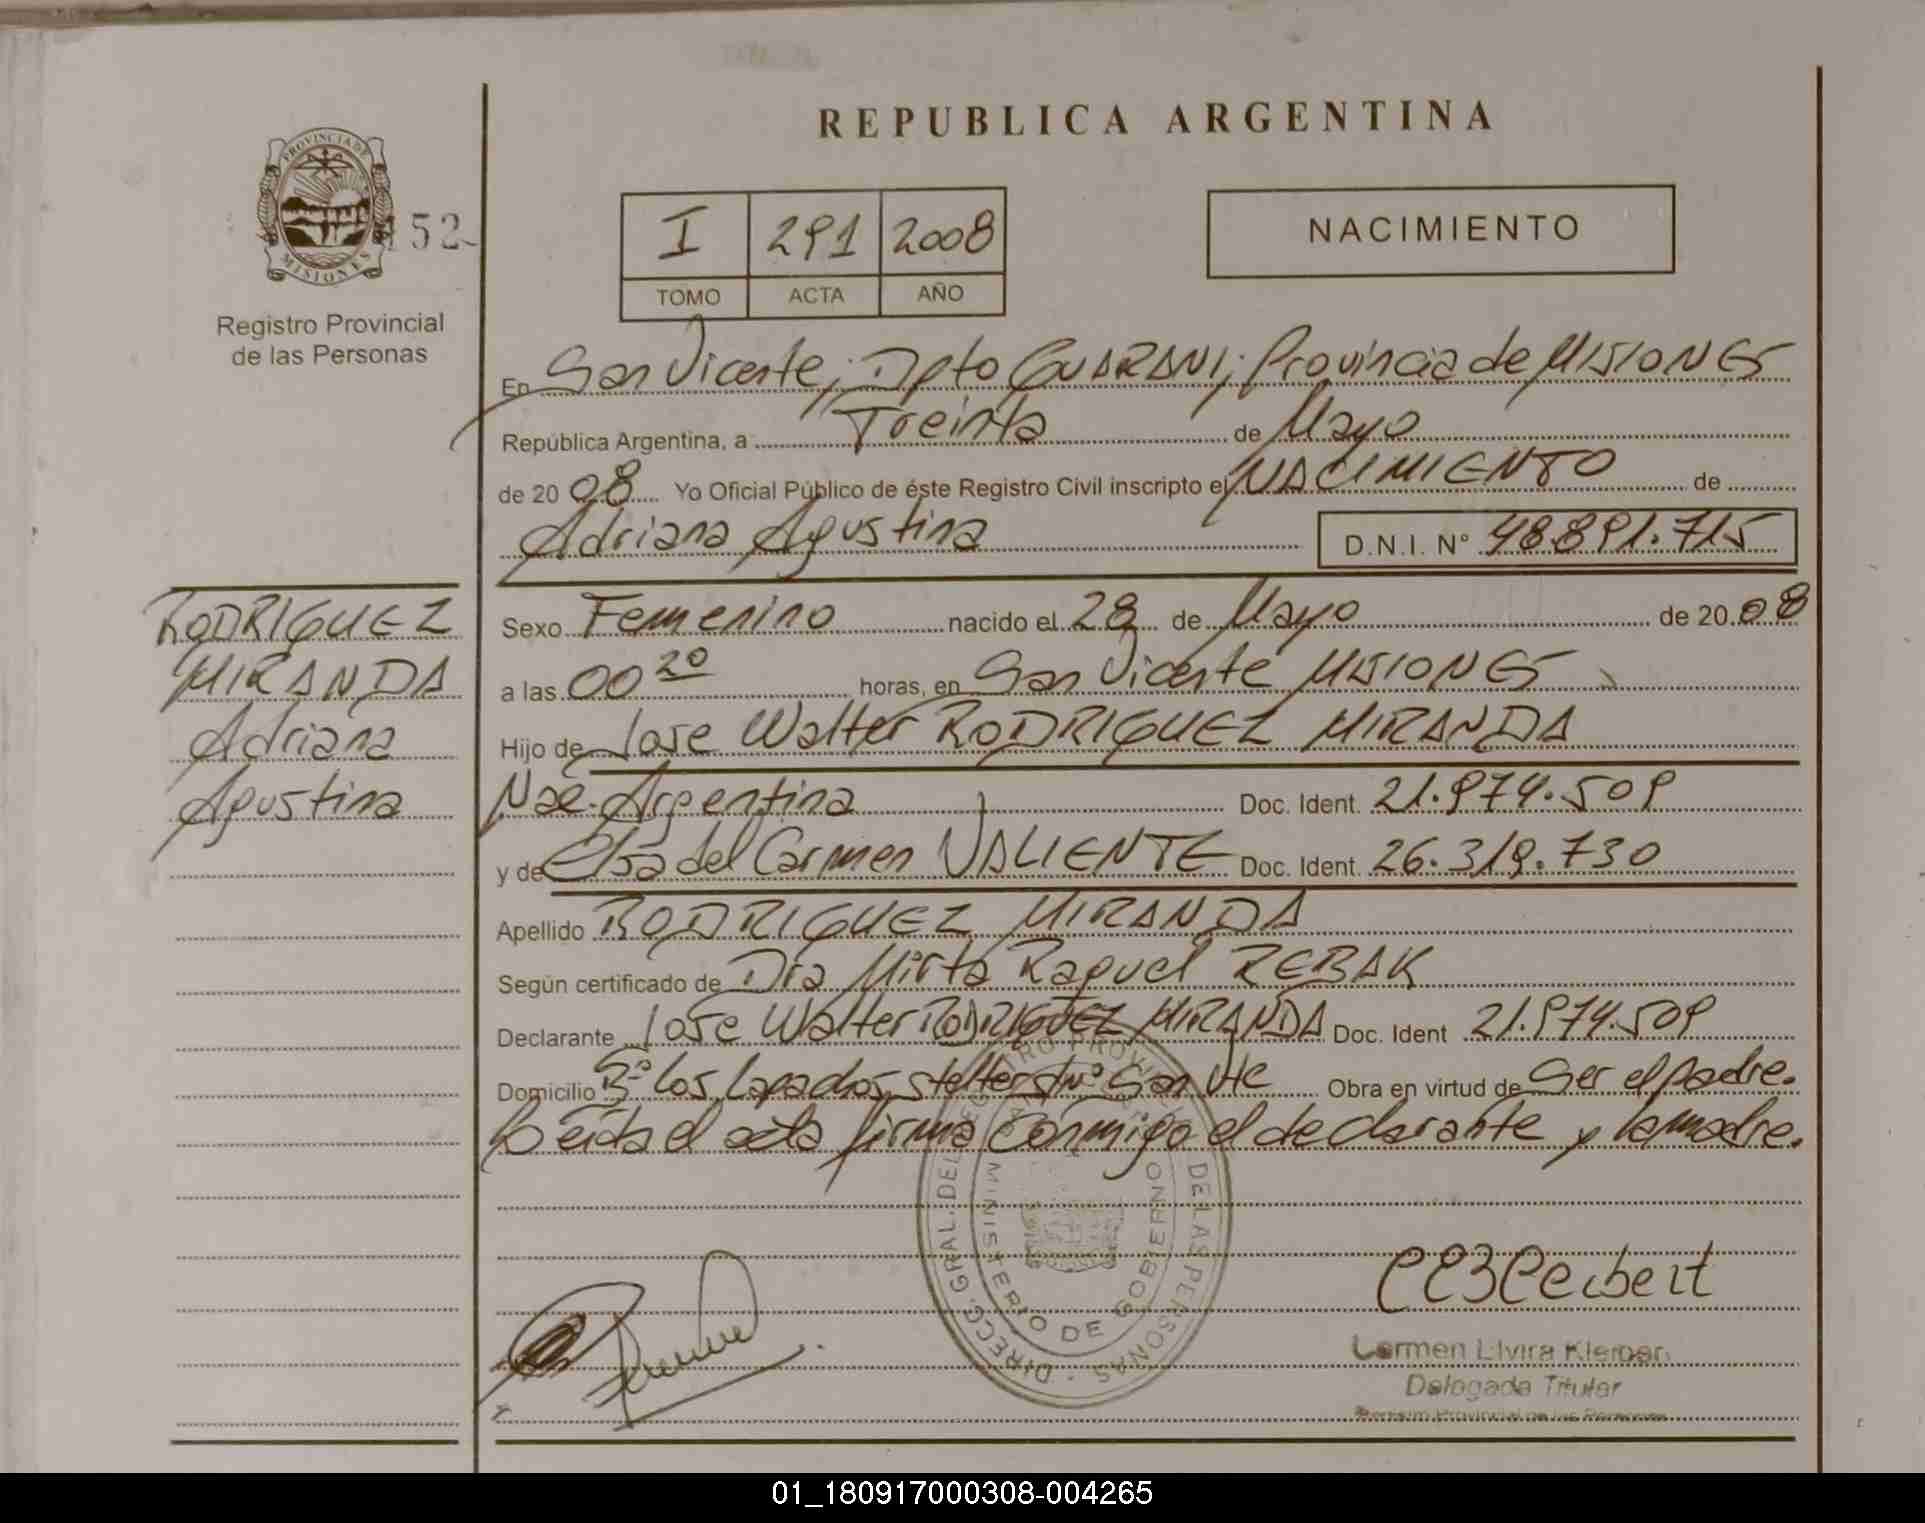 REPUBLICA ARGENTINA
PROVINCIA DE
MISIONES
152
Registro Provincial
de las Personas
I 291 2008
TOMO ACTA AÑO
NACIMIENTO
En San Vicente, Dpto GUARANI, Provincia de MISIONES
República Argentina, a Treinta de Mayo
de 20 08 Yo Oficial Público de éste Registro Civil inscripto el NACIMIENTO de
Adriana Agustina D.N.I. Nº 48.891.715
RODRIGUEZ
MIRANDA
Adriana
Agustina
Sexo Femenino nacido el 28 de Mayo de 20 08
a las 00 20 horas, en San Vicente MISIONES
Hijo de Jose Walter RODRIGUEZ MIRANDA
Nac. Argentina Doc. Ident. 21.974.509
y de Elsa del Carmen VALIENTE Doc. Ident. 26.319.730
Apellido RODRIGUEZ MIRANDA
Según certificado de Dra Mirta Raquel REBAK
Declarante Jose Walter RODRIGUEZ MIRANDA Doc. Ident 21.974.509
Domicilio Bº Los Lapachos, s/nº San Vte Obra en virtud de Ser el padre.
Leida el acta firma conmigo el declarante y la madre.
DIRECC. GRAL. DEL REGISTRO PROVINCIAL DE LAS PERSONAS
MINISTERIO DE GOBIERNO
Carmen Elvira
Delegada Titular
Registro Provincial de las Personas
01_180917000308-004265